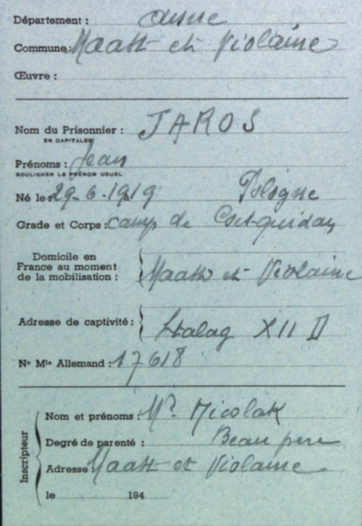 Département : aisne
Commune Maast et Violaine
Œuvre :
Nom du Prisonnier : JAROS
EN CAPITALES
Prénoms : Jean
SOULIGNER LE PRÉNOM USUEL
Né le : 29-6-1919 Pologne
Grade et Corps : camp de Coëtquidan
Domicile en
France au moment
de la mobilisation : Maast et Violaine
Adresse de captivité : Stalag XII D
N° Mle Allemand : 17618
Inscripteur
Nom et prénoms : Mr. Micolak
Degré de parenté : Beau pere
Adresse Maast et Violaine
le 194